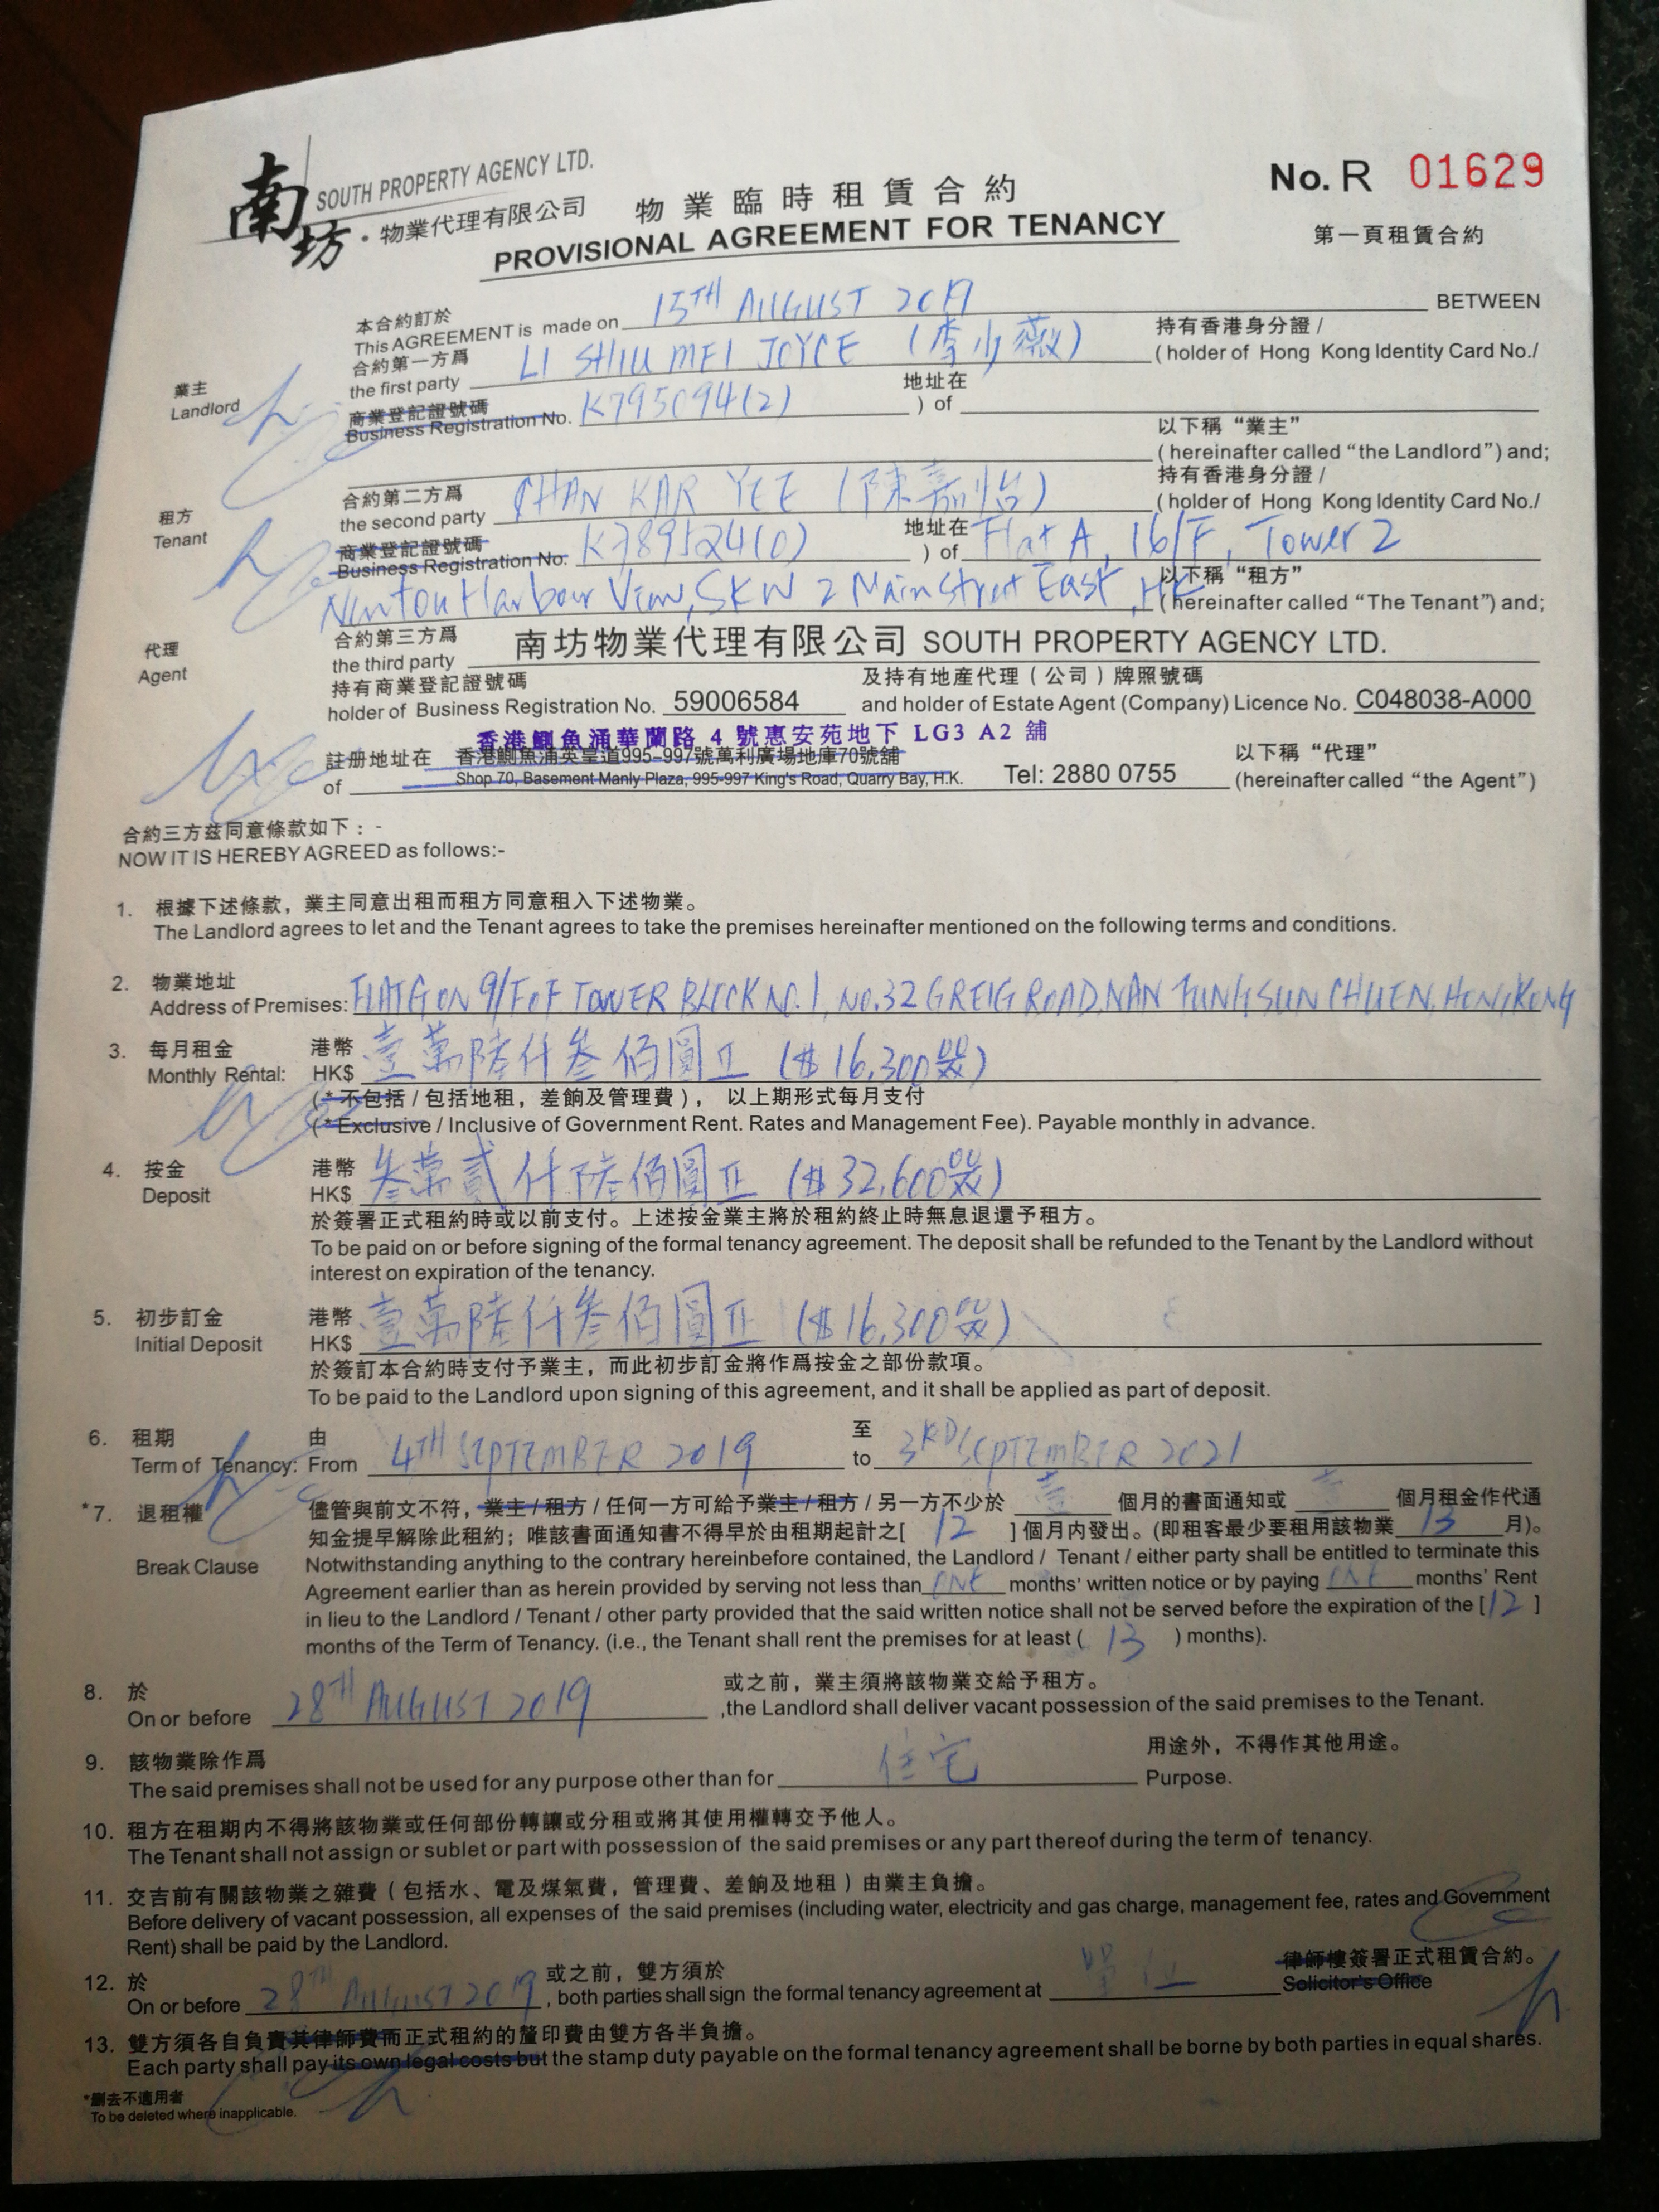 南坊
SOUTH PROPERTY AGENCY LTD.
・物業代理有限公司
物業臨時租賃合約
PROVISIONAL AGREEMENT FOR TENANCY
No. R 01629
第一頁租賃合約
本合約訂於
This AGREEMENT is made on 15TH AUGUST 2019 BETWEEN
業主
Landlord
合約第一方爲 持有香港身分證 /
the first party LI SHIU MEI JOYCE (李少薇) ( holder of Hong Kong Identity Card No./
商業登記證號碼 地址在
Business Registration No. K795094(2) ) of
以下稱 “業主”
( hereinafter called “the Landlord”) and;
租方
Tenant
合約第二方爲 持有香港身分證 /
the second party CHAN KAR YEE (陳嘉怡) ( holder of Hong Kong Identity Card No./
商業登記證號碼 地址在
Business Registration No. K789524(0) ) of Flat A, 16/F, Tower 2
以下稱 “租方”
Newton Harbour View, SKW 2 Main Street East, HK ( hereinafter called “The Tenant”) and;
代理
Agent
合約第三方爲
the third party 南坊物業代理有限公司 SOUTH PROPERTY AGENCY LTD.
持有商業登記證號碼 及持有地産代理（公司）牌照號碼
holder of Business Registration No. 59006584 and holder of Estate Agent (Company) Licence No. C048038-A000
香港鰂魚涌華蘭路 4 號惠安苑地下 LG3 A2 舖
註册地址在 香港鰂魚涌英皇道995-997號萬利廣場地庫70號舖 以下稱 “代理”
of Shop 70, Basement Manly Plaza, 995-997 King's Road, Quarry Bay, H.K. Tel: 2880 0755 (hereinafter called “the Agent”)
合約三方茲同意條款如下：-
NOW IT IS HEREBY AGREED as follows:-
1. 根據下述條款，業主同意出租而租方同意租入下述物業。
The Landlord agrees to let and the Tenant agrees to take the premises hereinafter mentioned on the following terms and conditions.
2. 物業地址
Address of Premises: FLAT G ON 9/F OF TOWER BLOCK NO.1, NO.32 GREIG ROAD, NAN FUNG SUN CHUEN, HONG KONG
3. 每月租金 港幣
Monthly Rental: HK$ 壹萬陸仟叁佰圓正 ($16,300)
(* 不包括 / 包括地租，差餉及管理費)， 以上期形式每月支付
(* Exclusive / Inclusive of Government Rent. Rates and Management Fee). Payable monthly in advance.
4. 按金 港幣
Deposit HK$ 叁萬貳仟陸佰圓正 ($32,600)
於簽署正式租約時或以前支付。上述按金業主將於租約終止時無息退還予租方。
To be paid on or before signing of the formal tenancy agreement. The deposit shall be refunded to the Tenant by the Landlord without
interest on expiration of the tenancy.
5. 初步訂金 港幣
Initial Deposit HK$ 壹萬陸仟叁佰圓正 ($16,300)
於簽訂本合約時支付予業主，而此初步訂金將作爲按金之部份款項。
To be paid to the Landlord upon signing of this agreement, and it shall be applied as part of deposit.
6. 租期 由 至
Term of Tenancy: From 4TH SEPTEMBER 2019 to 3RD SEPTEMBER 2021
*7. 退租權 儘管與前文不符，業主 / 租方 / 任何一方可給予業主 / 租方 / 另一方不少於 壹 個月的書面通知或 個月租金作代通
知金提早解除此租約；唯該書面通知書不得早於由租期起計之[ 12 ]個月内發出。(即租客最少要租用該物業 13 月)。
Break Clause Notwithstanding anything to the contrary hereinbefore contained, the Landlord / Tenant / either party shall be entitled to terminate this
Agreement earlier than as herein provided by serving not less than ONE months' written notice or by paying ONE months' Rent
in lieu to the Landlord / Tenant / other party provided that the said written notice shall not be served before the expiration of the [12]
months of the Term of Tenancy. (i.e., the Tenant shall rent the premises for at least ( 13 ) months).
8. 於 或之前，業主須將該物業交給予租方。
On or before 28TH AUGUST 2019 ,the Landlord shall deliver vacant possession of the said premises to the Tenant.
9. 該物業除作爲 用途外，不得作其他用途。
The said premises shall not be used for any purpose other than for 住宅 Purpose.
10. 租方在租期内不得將該物業或任何部份轉讓或分租或將其使用權轉交予他人。
The Tenant shall not assign or sublet or part with possession of the said premises or any part thereof during the term of tenancy.
11. 交吉前有關該物業之雜費（包括水、電及煤氣費，管理費、差餉及地租）由業主負擔。
Before delivery of vacant possession, all expenses of the said premises (including water, electricity and gas charge, management fee, rates and Government
Rent) shall be paid by the Landlord.
12. 於 或之前，雙方須於 律師樓簽署正式租賃合約。
On or before 28TH AUGUST 2019 , both parties shall sign the formal tenancy agreement at 單位 Solicitor's Office
13. 雙方須各自負責其律師費而正式租約的釐印費由雙方各半負擔。
Each party shall pay its own legal costs but the stamp duty payable on the formal tenancy agreement shall be borne by both parties in equal shares.
*刪去不適用者
To be deleted where inapplicable.